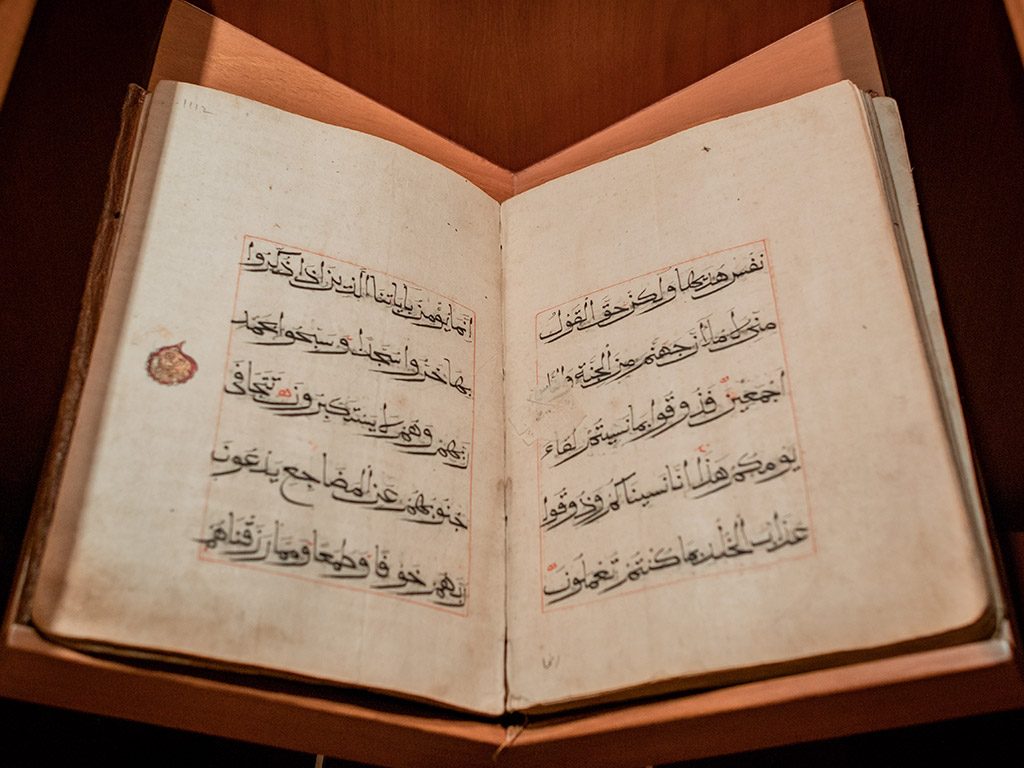 نفس هديها ولكن حق القول
مني لاملأن جهنم من الجنة والناس
اجمعين فذوقوا بما نسيتم لقاء
يومكم هذا انا نسيناكم وذوقوا
عذاب الخلد بما كنتم تعملون
انما يؤمن باياتنا الذين اذا ذكروا
بها خروا سجدا وسبحوا بحمد
ربهم وهم لا يستكبرون تتجافى
جنوبهم عن المضاجع يدعون
ربهم خوفا وطمعا ومما رزقناهم